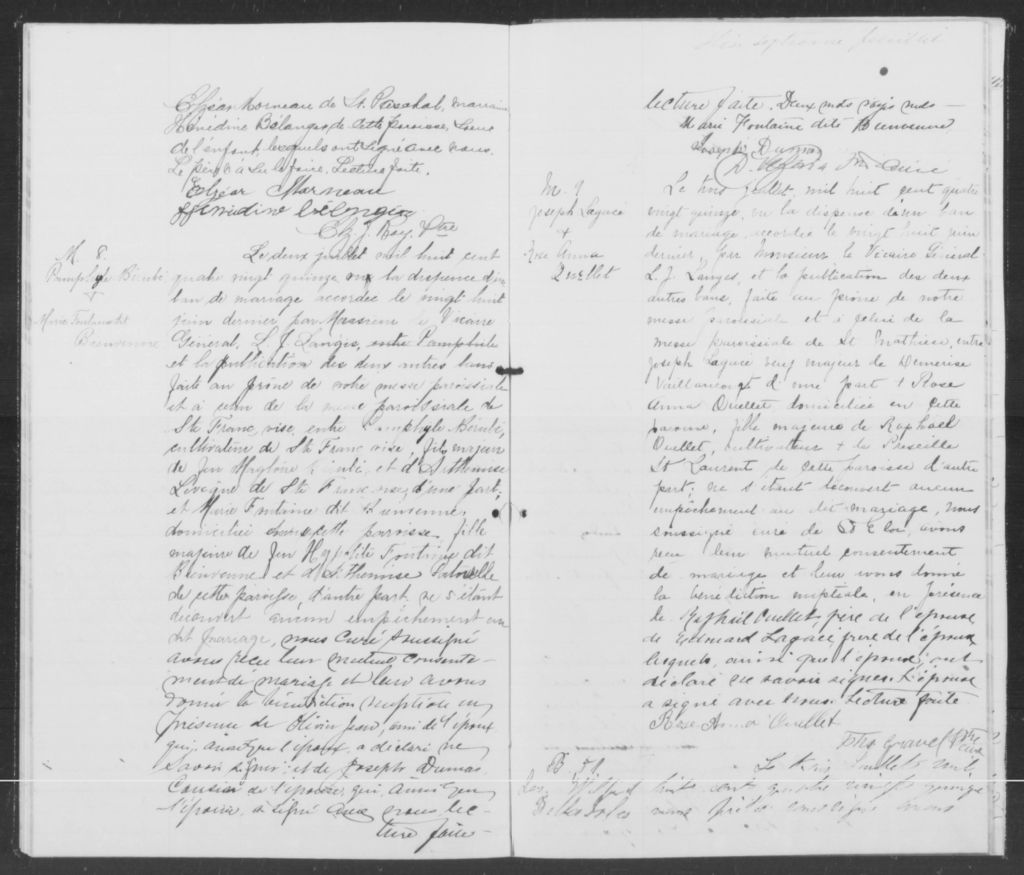 Elzéar Morneau de St. Paschal, marraine
Hénédine Bélanger de cette paroisse, soeur
de l'enfant, lesquels ont signé avec nous.
Le père n'a su le faire. Lecture faite.
Elzéar Morneau
Hénédine Bélanger
Ptre
M. 8.
Pamphyle Bérubé
+
Marie Fontaine dit
Bienvenue
Le deux juillet mil huit cent
quatre vingt quinze vu la dispense d'un
ban de mariage accordée le vingt huit
juin dernier par Monsieur le Vicaire
Général, L. J. Langis, entre Pamphile
et la publication des deux autres bans
faite au prône de notre messe paroissiale
et à celui de la messe paroissiale de
Ste Françoise, entre Pamphyle Bérubé,
cultivateur de Ste Françoise, fils majeur
de feu Magloire Bérubé, et d'Arthémise
Levêque de Ste Françoise, d'une part,
et Marie Fontaine dit Bienvenue
domiciliée dans cette paroisse, fille
majeure de feu Hypolite Fontaine dit
Bienvenue et d'Arthémise
de cette paroisse, d'autre part, ne s'étant
découvert aucun empêchement au
dit mariage, nous Curé soussigné
avons reçu leur mutuel consente-
ment de mariage et leur avons
donné la bénédiction nuptiale en
présence de Olivier Jean, ami de l'époux
qui, ainsi que l'époux, a déclaré ne
savoir signer; et de Joseph Dumas
Cousin de l'épouse, qui, ainsi que
l'épouse, a signé avec nous lec-
ture faite-
lecture faite. Deux mots rayés nuls-
Marie Fontaine dite Bienvenue
Joseph Dumas
Ptre Curé
M. 9
Joseph Lagacé
+
Rose Anna
Ouellet
Le trois juillet, mil huit cent quatre
vingt quinze, vu la dispense d'un ban
de mariage, accordée le vingt huit juin
dernier, par Monsieur le Vicaire Général
L. J. Langis, et la publication des deux
autres bans, faite au prône de notre
messe paroissiale et à celui de la
messe paroissiale de St Mathieu, entre
Joseph Lagacé veuf majeur de Demerise
Vaillancourt d'une part & Rose
Anna Ouellet domiciliée en cette
paroisse, fille majeure de Raphaël
Ouellet, cultivateur & de Preseille
St Laurent de cette paroisse d'autre
part; ne s'étant découvert aucun
empêchement au dit mariage, nous
soussigné curé de St Eloi, avons
reçu leur mutuel consentement
de mariage et leur avons donné
la bénédiction nuptiale, en présence
de Raphaël Ouellet, père de l'épouse
de Edouard Lagacé frère de l'époux
lesquels, ainsi que l'époux, ont
déclaré ne savoir signer. L'épouse
a signé avec nous. Lecture faite.
Rose-Anna Ouellet
Gravel Ptre
Curé
Le trois Juillet
huit cent quatre vingt quinze
nous Prêtre soussigné avons